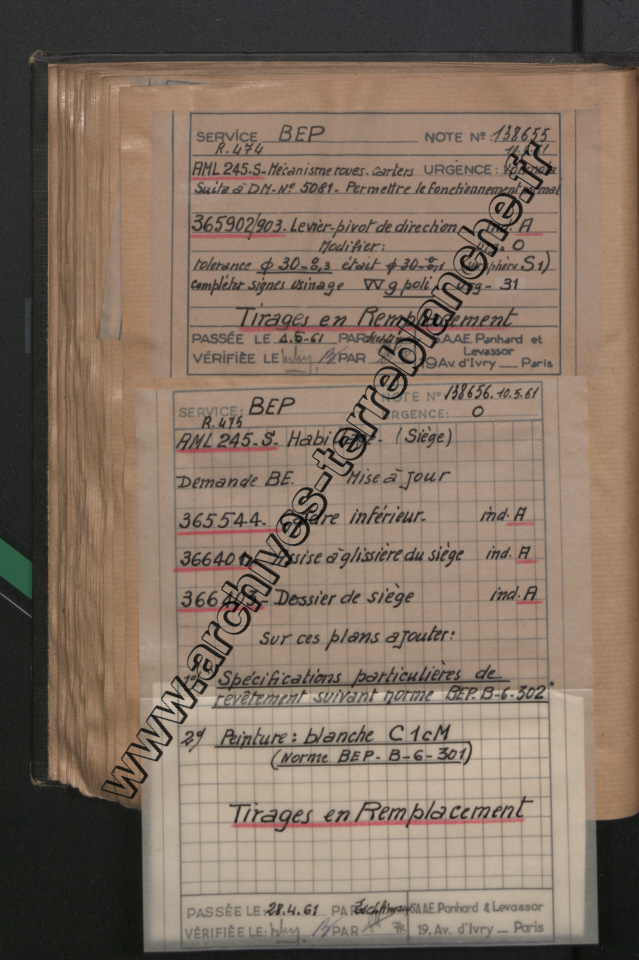 SERVICE BEP NOTE Nº: 138655
R.474
AML 245-S- Mécanisme roues. carters URGENCE:
Suite à DM-Nº 5081- Permettre le fonctionnement normal
365902/903- Levier-pivot de direction ind. A
Modifier: O
tolerance ϕ 30 était ϕ 30 S1)
compléter signes usinage g poli 31
Tirages en Remplacement
PASSÉE LE 4.5-61 PAR S.A.A.E. Panhard et Levassor
VÉRIFIÉE LE PAR 19 Av. d'Ivry __ Paris
SERVICE: BEP NOTE Nº 138656. 10.5.61
R.475 URGENCE: O
AML 245-S- (Siège)
Demande BE. Mise à jour
365544- cadre inférieur- ind. A
Assise à glissière du siège ind. A
Dossier de siège ind. A
Sur ces plans ajouter:
Spécifications particulières de
revêtement suivant norme BEP. B-6-302"
2º/ Peinture: blanche C1cM
(Norme BEP- B-6-301)
Tirages en Remplacement
PASSÉE LE: 28.4.61 PAR S.A.A.E. Panhard & Levassor
VÉRIFIÉE LE: PAR 19, Av. d'Ivry __ Paris
www.archives-terreblanche.fr